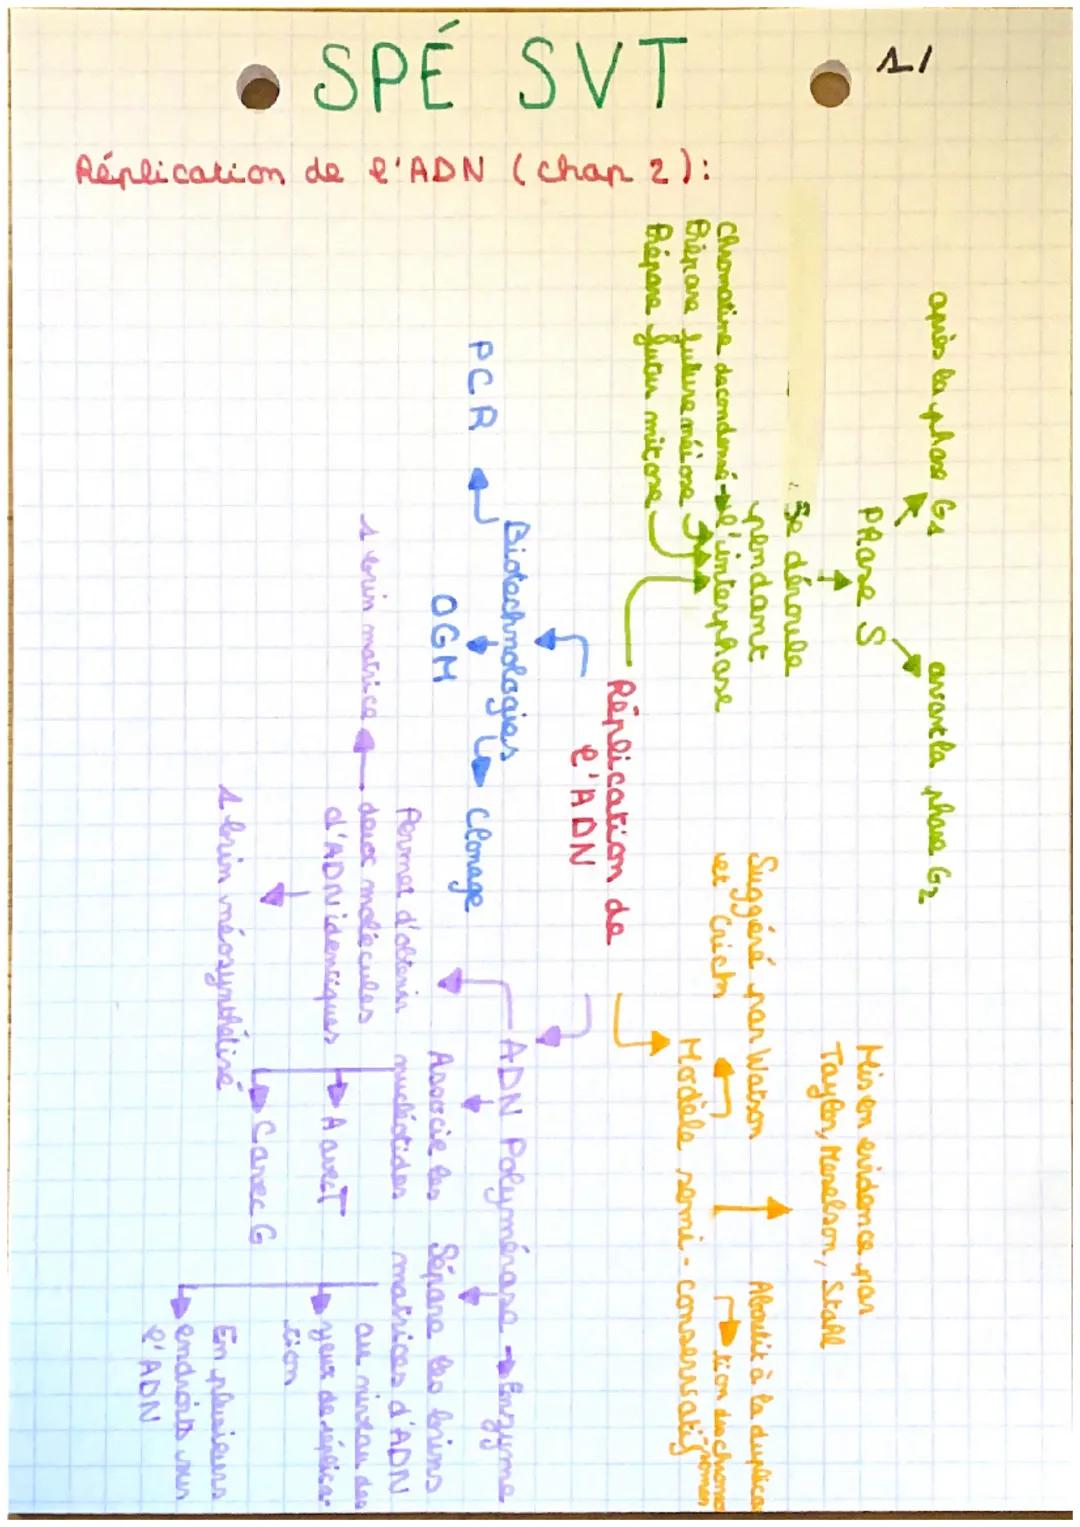 SPÉ SVT
1/
Réplication de l'ADN (chap 2):
après la phase G1
avant la phase G2
Phase S
Se déroule
pendant
l'interphase
Chromatine décondensé
Prépare future méiose
Prépare futur mitose
Réplication de
l'ADN
Mis en evidence par
Taylor, Meselson, Stall
Suggéré par Watson
et Crick
Aboutit à la duplica-
tion des chromo-
somes
Modèle semi-conservatif
Biotechnologies
PCR
OGM
Clonage
ADN Polymérase → Enzyme
Permet d'obtenir
deux molécules
d'ADN identiques
1 brin matrice
1 brin néosynthétisé
Associe les
nucléotides
A avec T
C avec G
Sépare les brins
matrices d'ADN
au niveau des
yeux de réplica-
tion
En plusieurs
endroits sur
l'ADN